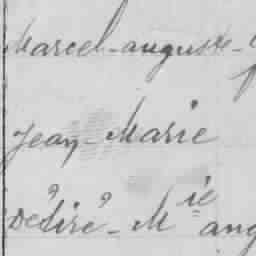 Marcel-auguste-
Jean-Marie
Désiré-M^ie ang